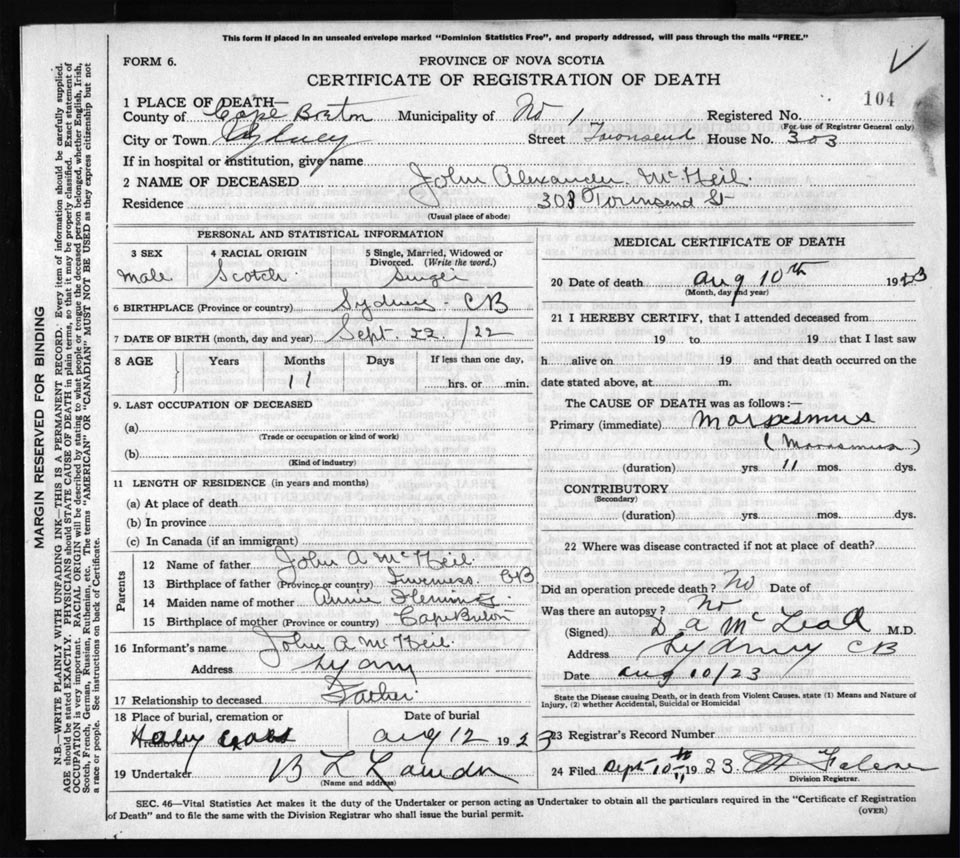 This form if placed in an unsealed envelope marked "Dominion Statistics Free", and properly addressed, will pass through the mails "FREE."
FORM 6.
PROVINCE OF NOVA SCOTIA
CERTIFICATE OF REGISTRATION OF DEATH
104
1 PLACE OF DEATH—
County of Cape Breton Municipality of No 1 Registered No.
(For use of Registrar General only)
City or Town Sydney Street Townsend House No. 303
If in hospital or institution, give name
2 NAME OF DECEASED John Alexander McNeil
Residence 303 Townsend St
(Usual place of abode)
PERSONAL AND STATISTICAL INFORMATION
3 SEX 4 RACIAL ORIGIN 5 Single, Married, Widowed or Divorced. (Write the word.)
Male Scotch Single
6 BIRTHPLACE (Province or country) Sydney CB
7 DATE OF BIRTH (month, day and year) Sept. 22/22
8 AGE Years Months Days If less than one day,
11 hrs. or min.
9. LAST OCCUPATION OF DECEASED
(a)
(Trade or occupation or kind of work)
(b)
(Kind of industry)
11 LENGTH OF RESIDENCE (in years and months)
(a) At place of death
(b) In province
(c) In Canada (if an immigrant)
Parents
12 Name of father John A McNeil
13 Birthplace of father (Province or country) Inverness. CB
14 Maiden name of mother Annie Fleming
15 Birthplace of mother (Province or country) Cape Breton
16 Informant's name John A McNeil
Address Sydney
17 Relationship to deceased Father
18 Place of burial, cremation or removal Date of burial
Holy Cross Aug 12 1923
19 Undertaker B L
(Name and address)
MEDICAL CERTIFICATE OF DEATH
20 Date of death Aug 10th 1923
(Month, day and year)
21 I HEREBY CERTIFY, that I attended deceased from
19 to 19 that I last saw
h alive on 19 and that death occurred on the
date stated above, at m.
The CAUSE OF DEATH was as follows:—
Primary (immediate) Marasmus
(Marasmus)
(duration) yrs. 11 mos. dys.
CONTRIBUTORY
(Secondary)
(duration) yrs. mos. dys.
22 Where was disease contracted if not at place of death?
Did an operation precede death? No Date of
Was there an autopsy? No
(Signed) D A McLeod M.D.
Address Sydney CB
Date Aug 10/23
State the Disease causing Death, or in death from Violent Causes, state (1) Means and Nature of
Injury, (2) whether Accidental, Suicidal or Homicidal
23 Registrar's Record Number
24 Filed Sept 10th 1923.
Division Registrar.
SEC. 46—Vital Statistics Act makes it the duty of the Undertaker or person acting as Undertaker to obtain all the particulars required in the "Certificate of Registration
of Death" and to file the same with the Division Registrar who shall issue the burial permit.
(OVER)
MARGIN RESERVED FOR BINDING
N.B.—WRITE PLAINLY WITH UNFADING INK—THIS IS A PERMANENT RECORD. Every item of information should be carefully supplied.
AGE should be stated EXACTLY. PHYSICIANS should STATE CAUSE OF DEATH in plain terms, so that it may be properly classified. Exact statement of
OCCUPATION is very important. RACIAL ORIGIN will be described by stating to what people or tongue the deceased person belonged, whether English, Irish,
Scotch, French, German, Russian, Ruthenian, etc. The terms "AMERICAN" or "CANADIAN" MUST NOT BE USED as they express citizenship but not
a race or people. See instructions on back of Certificate.